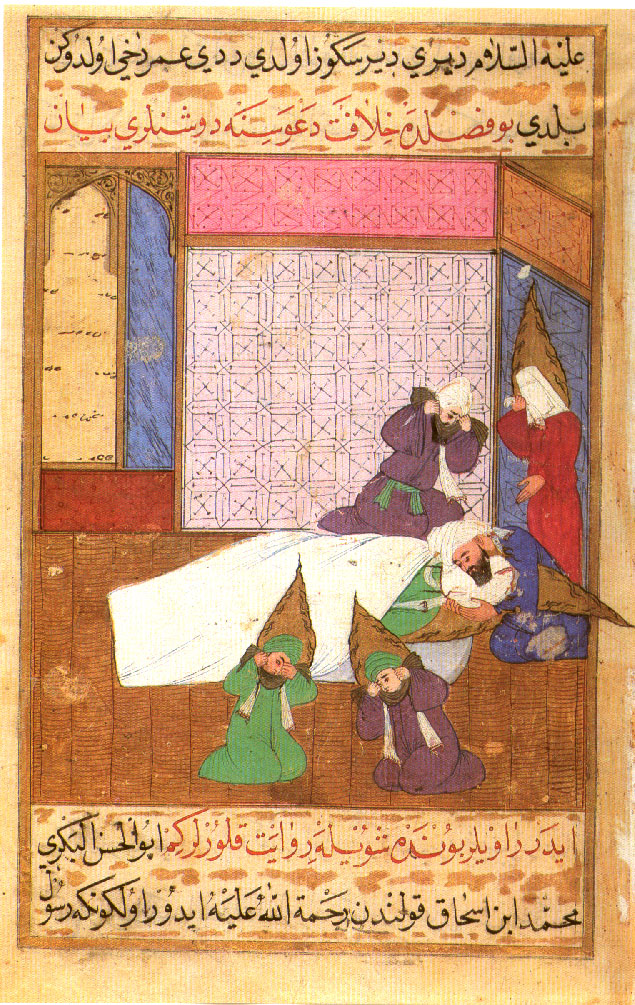 عليه السلام ديري ديرسكوز اولدي ددي عمر دخي اولدوكن
بلدي بو فصلده خلافت دعوسنه دوشنلري بيان
ايدر راويلر بونده شويله روايت قلورلركم ابو الحسن البكري
محمد ابن اسحاق قولندن رحمة الله عليه ايدور اولكونكه رسول